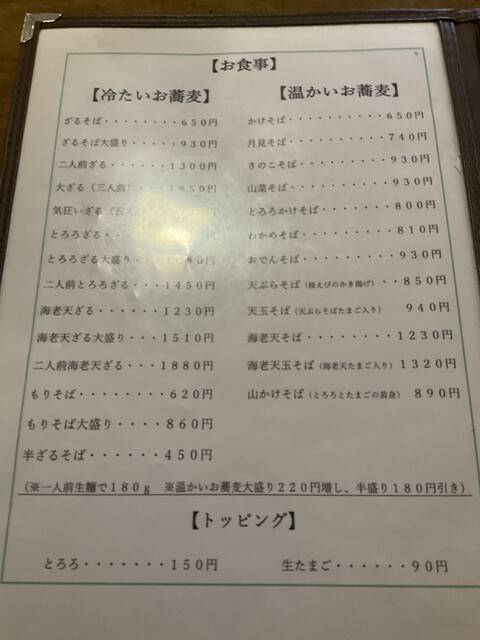 【お食事】
【冷たいお蕎麦】
ざるそば・・・・・・・・650円
ざるそば大盛り・・・・・930円
二人前ざる・・・・・・1300円
大ざる（三人前）・・・1950円
気狂いざる（五人
とろろざる・・・・
とろろざる大盛り・・・
二人前とろろざる・・・1450円
海老天ざる・・・・・・1230円
海老天ざる大盛り・・・1510円
二人前海老天ざる・・・1880円
もりそば・・・・・・・・620円
もりそば大盛り・・・・860円
半ざるそば・・・・・・450円
【温かいお蕎麦】
かけそば・・・・・・・・・・650円
月見そば・・・・・・・・・・740円
きのこそば・・・・・・・・・930円
山菜そば・・・・・・・・・・930円
とろろかけそば・・・・・・・800円
わかめそば・・・・・・・・・810円
おでんそば・・・・・・・・・930円
天ぷらそば（桜えびのかき揚げ）・・850円
天玉そば（天ぷらそばたまご入り） 940円
海老天そば・・・・・・・・1230円
海老天玉そば（海老天たまご入り）1320円
山かけそば（とろろとたまごの黄身） 890円
（※一人前生麺で180g ※温かいお蕎麦大盛り220円増し、半盛り180円引き）
【トッピング】
とろろ・・・・・・・150円
生たまご・・・・・・90円